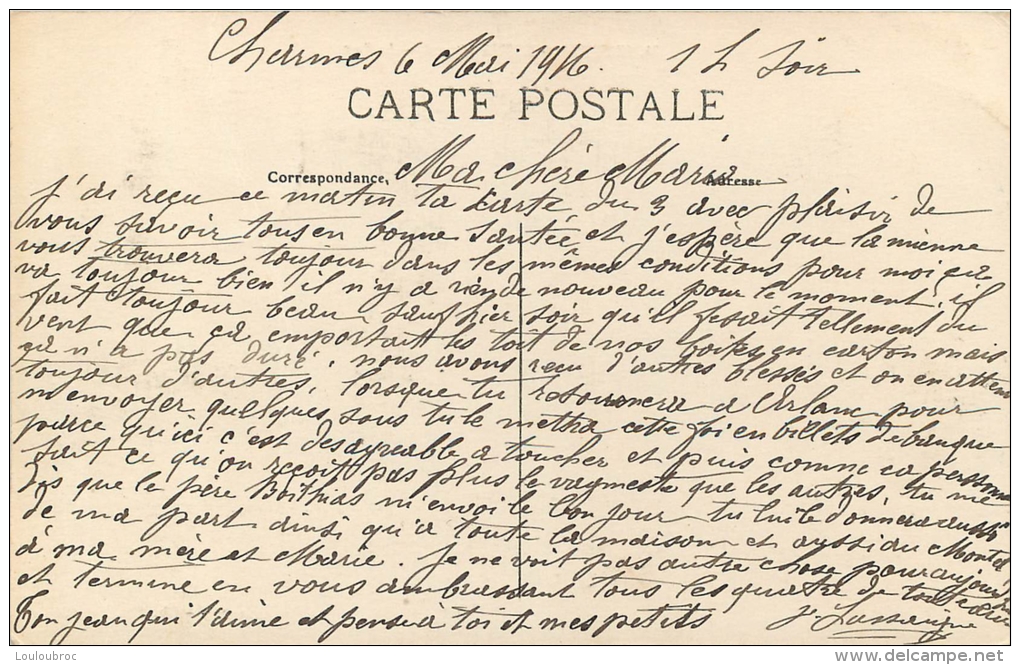 Charmes 6 Mai 1916. 1 h soir
CARTE POSTALE
Correspondance, Ma chère Marie Adresse
J'ai reçu ce matin ta carte du 3 avec plaisir de
vous savoir tous en bonne santée, et j'espère que la mienne
vous trouvera toujour dans les mêmes conditions pour moi ça
va toujour bien il n'y a rien de nouveau pour le moment, il
fait toujour beau, sauf hier soir qu'il fesait tellement du
vent que ça emportait les toit de nos boites en carton mais
ça n'a pas duré, nous avons reçu d'autres blessés et on en attend
toujour d'autres, lorsque tu retournera a Arlanc pour
m'envoyer quelques sous tu le mettra cette foi en billets de banque
parce qu'ici c'est desagreable a toucher et puis comme ca personne
sait ce qu'on reçoit pas plus le vagmestre que les autres, tu me
dis que le père Boithias m'envoi le bonjour tu lui le donnera aussi
de ma part ainsi qu'a toute la maison et aussi au Montel
à ma mère et Marie. Je ne voit pas autre chose pour aujourd'hui
et termine en vous ambrassant tous les quatre de tout cœur
Ton jean qui t'aime et pense a toi et mes petits J. Lassaigne
© Louloubroc
www.delcampe.net